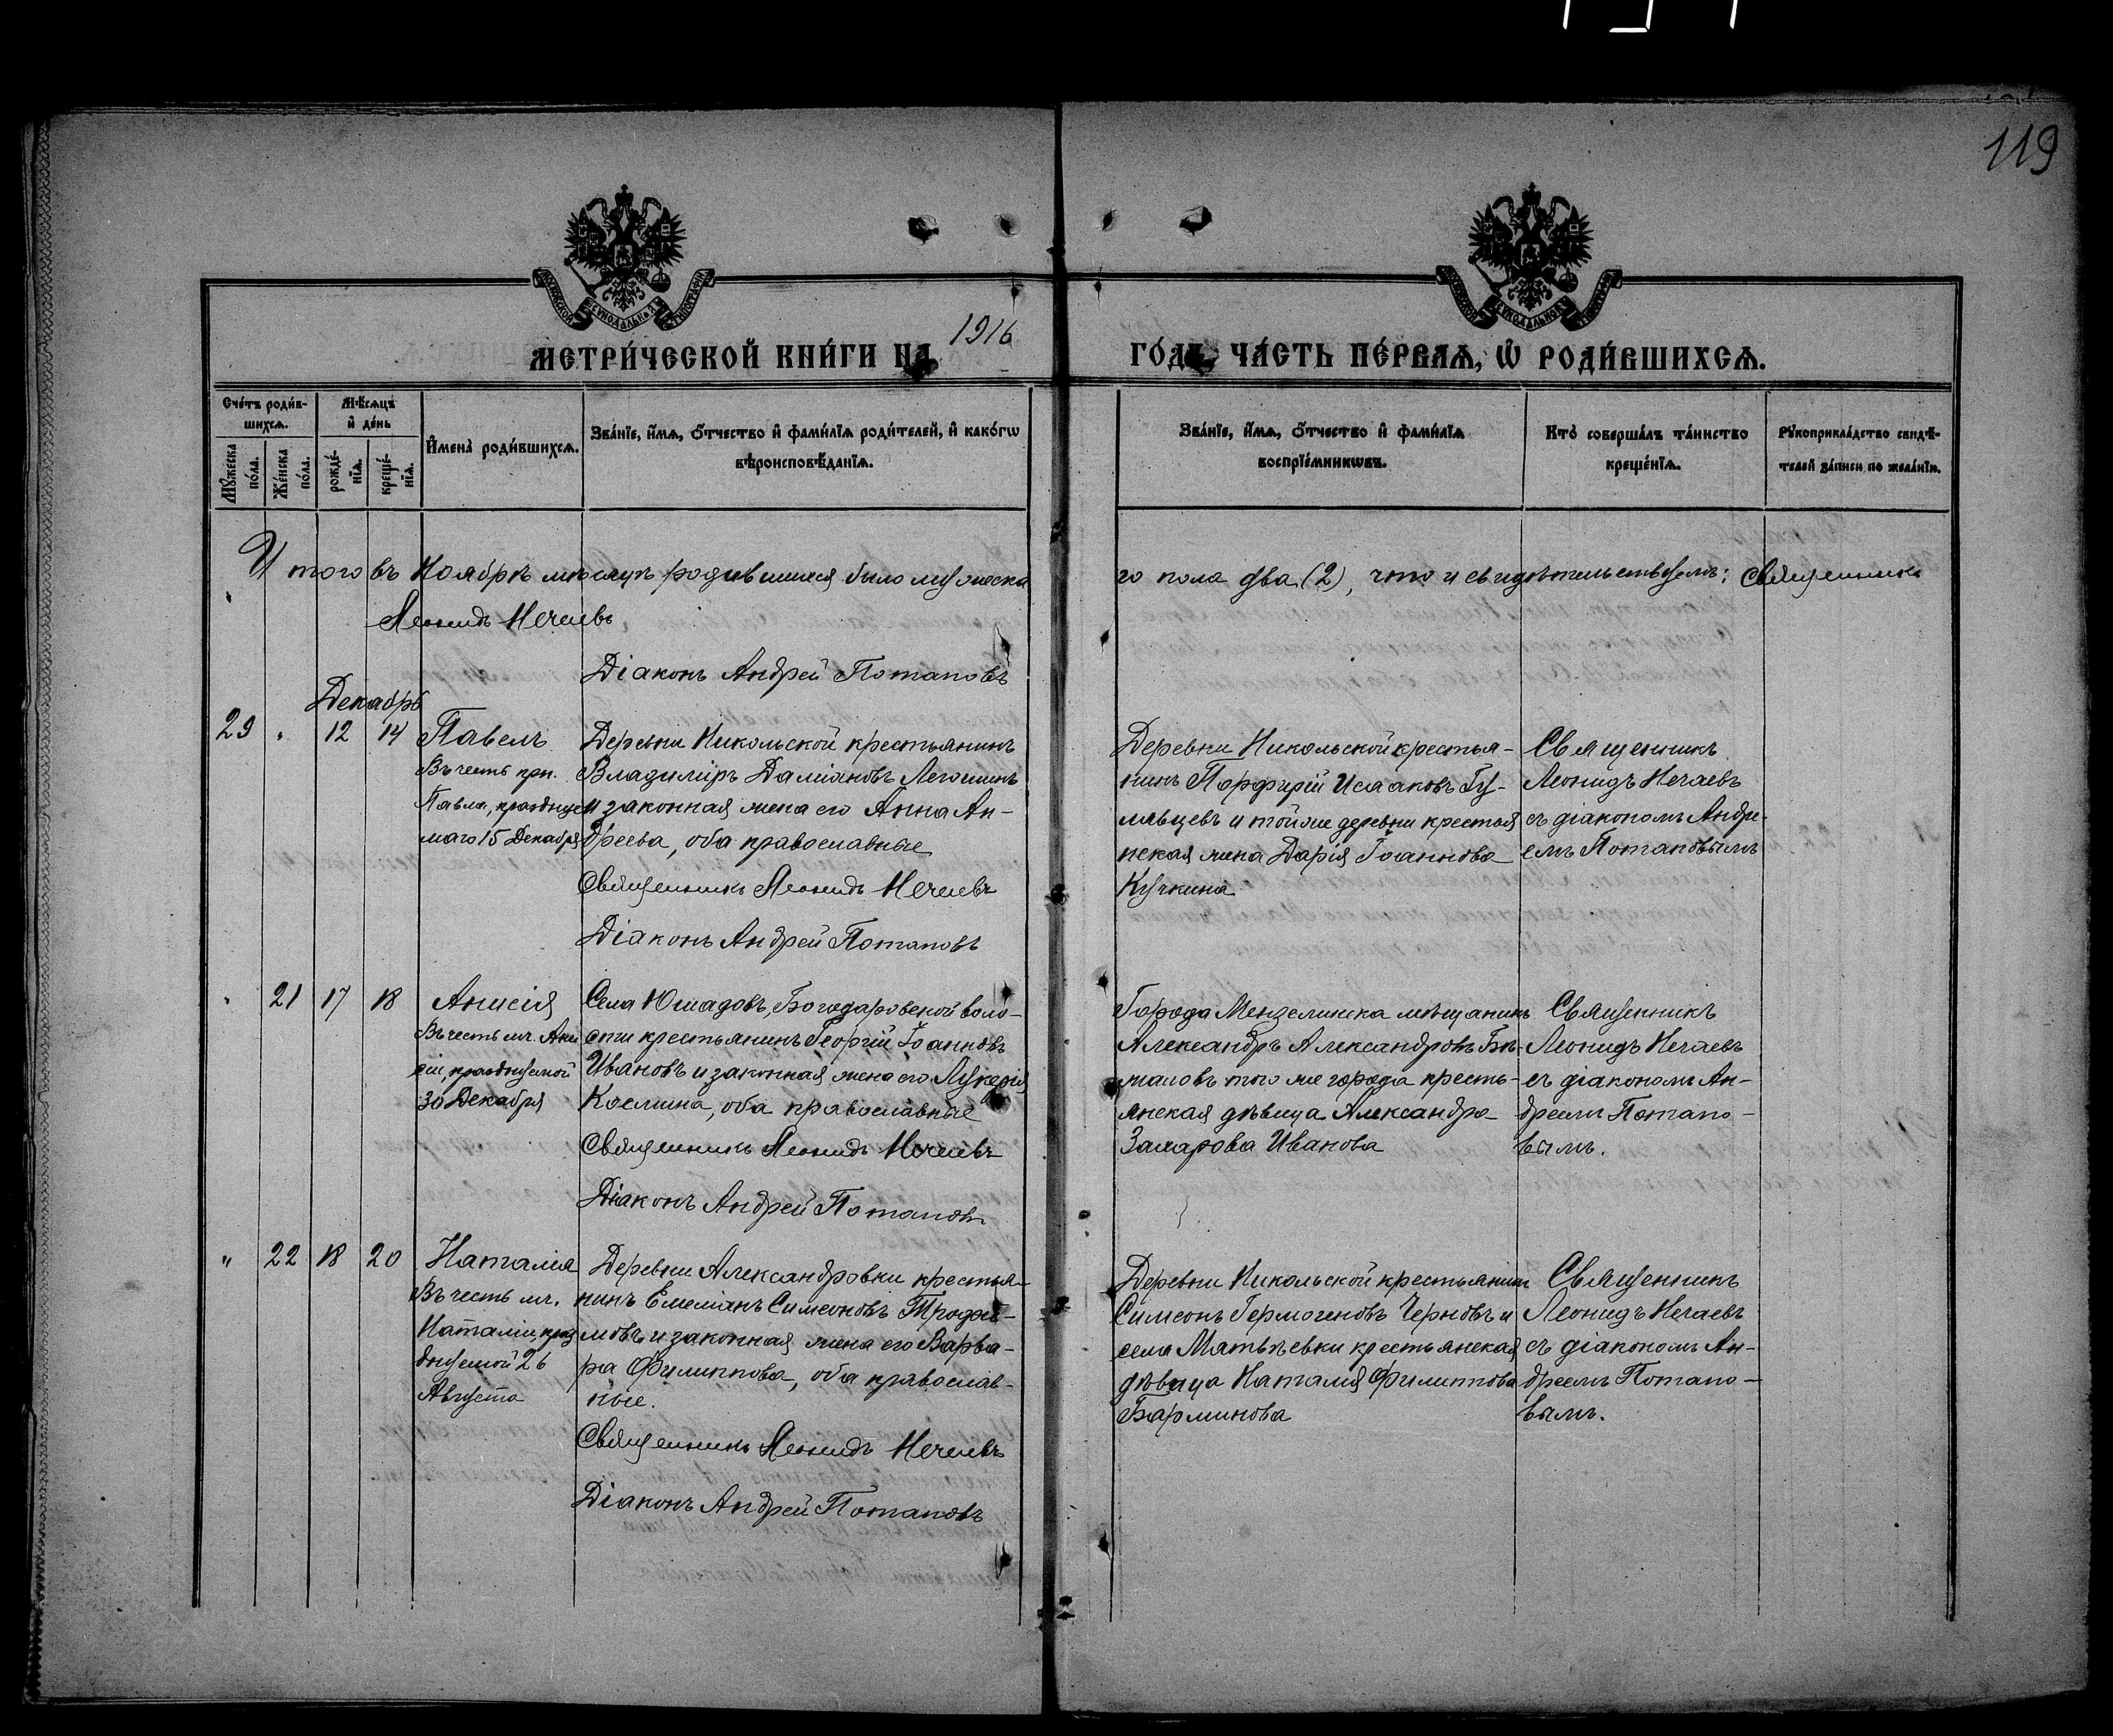 119
1916
МЕТРИ́ЧЕСКОЙ КНИ́ГИ НА ГО́ДЪ ЧА́СТЬ ПЕ́РВАѦ, Ѡ҆ РОДИ́ВШИХСѦ.
Сче́тъ роди́в-
шихсѧ.
Мѣ́сѧцъ
и҆ де́нь
Мꙋ́жеска
по́ла.
Же́нска
по́ла.
рожде́-
нїѧ.
креще́-
нїѧ.
И҆мена̀ роди́вшихсѧ.
Зва́нїе, и҆́мѧ, ѻ҆́тчество и҆ фами́лїѧ роди́телей, и҆ како́гѡ
вѣроисповѣ́данїѧ.
Зва́нїе, и҆́мѧ, ѻ҆́тчество и҆ фами́лїѧ
воспрїе́мникѡвъ.
Кто̀ соверша́лъ та́инство
креще́нїѧ.
Рꙋкоприкла́дство свидѣ́-
телей за́писи по жела́нїю.
Итого въ Ноябрѣ мѣсяцѣ родившихся было мужеска
го пола два (2), что и свидѣтельствуемъ: Священникъ
Леонидъ Нечаевъ
Діаконъ Андрей Потаповъ
Декабрь
29 " 12 14
Павелъ
Въ честь прп.
Павла, празднуе
маго 15 Декабря
Деревни Никольской крестьянинъ
Владиміръ Даміановъ Легошинъ
и законная жена его Анна Ан-
дреева, оба православные
Священникъ Леонидъ Нечаевъ
Діаконъ Андрей Потаповъ
Деревни Никольской крестья-
нинъ Порфирій Исааковъ Гу-
ляевцевъ и той же деревни крестья
нская жена Дарія Іоаннова
Кучкина
Священникъ
Леонидъ Нечаевъ
съ діакономъ Андре-
емъ Потаповымъ
" 21 17 18
Анисія
Въ честь мч. Ани
сіи, празднуемой
30 Декабря
Села Юмадовъ, Богодаровской воло-
сти крестьянинъ Георгій Іоанновъ
Ивановъ и законная жена его Лукерія
Косьмина, оба православные
Священникъ Леонидъ Нечаевъ
Діаконъ Андрей Потаповъ
Города Мензелинска мѣщанинъ
Александръ Александровъ
того же города кресть-
янская дѣвица Александра
Захарова Иванова
Священникъ
Леонидъ Нечаевъ
съ діакономъ Ан-
дреемъ Потапо-
вымъ.
" 22 18 20
Наталія
Въ честь мч.
Наталіи, праз
днуемой 26
Августа
Деревни Александровки крестья-
нинъ Емеліанъ Симеоновъ Трофи-
мовъ и законная жена его Варва-
ра Филиппова, оба православ-
ные.
Священникъ Леонидъ Нечаевъ
Діаконъ Андрей Потаповъ
Деревни Никольской крестьянинъ
Симеонъ Гермогеновъ Черновъ и
села Матвѣевки крестьянская
дѣвица Наталія Филиппова
Барминова
Священникъ
Леонидъ Нечаевъ
съ діакономъ Ан-
дреемъ Потапо-
вымъ.